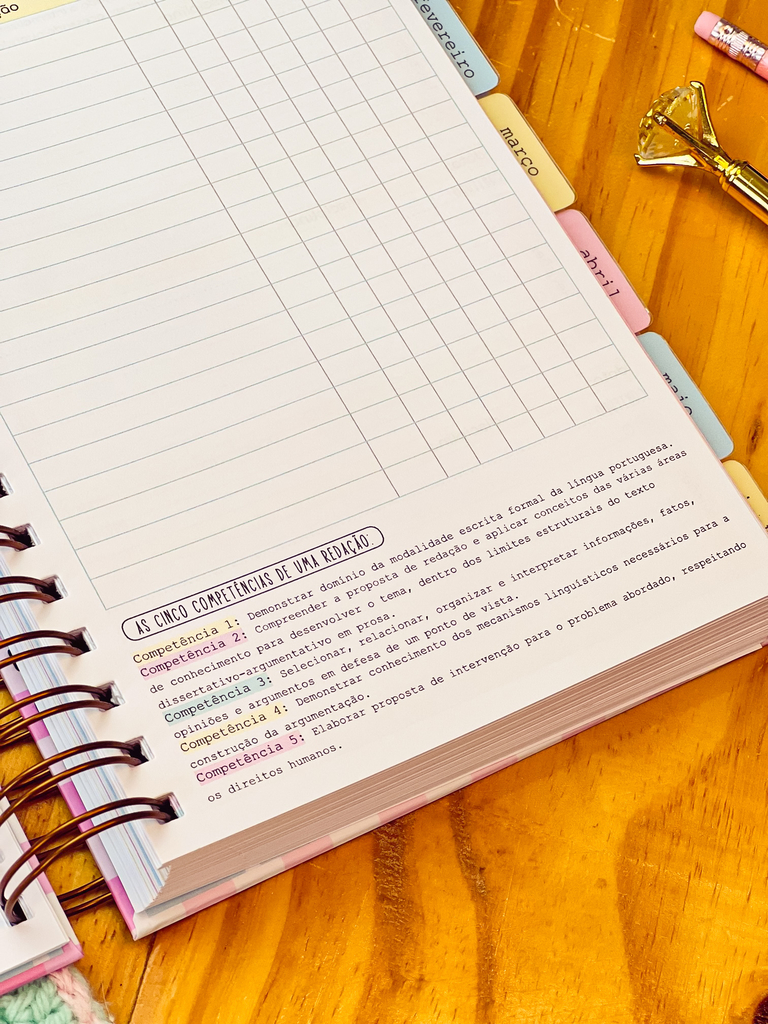 ção
fevereiro
março
abril
maio
AS CINCO COMPETÊNCIAS DE UMA REDAÇÃO:
Competência 1: Demonstrar domínio da modalidade escrita formal da língua portuguesa.
Competência 2: Compreender a proposta de redação e aplicar conceitos das várias áreas
de conhecimento para desenvolver o tema, dentro dos limites estruturais do texto
dissertativo-argumentativo em prosa.
Competência 3: Selecionar, relacionar, organizar e interpretar informações, fatos,
opiniões e argumentos em defesa de um ponto de vista.
Competência 4: Demonstrar conhecimento dos mecanismos linguísticos necessários para a
construção da argumentação.
Competência 5: Elaborar proposta de intervenção para o problema abordado, respeitando
os direitos humanos.